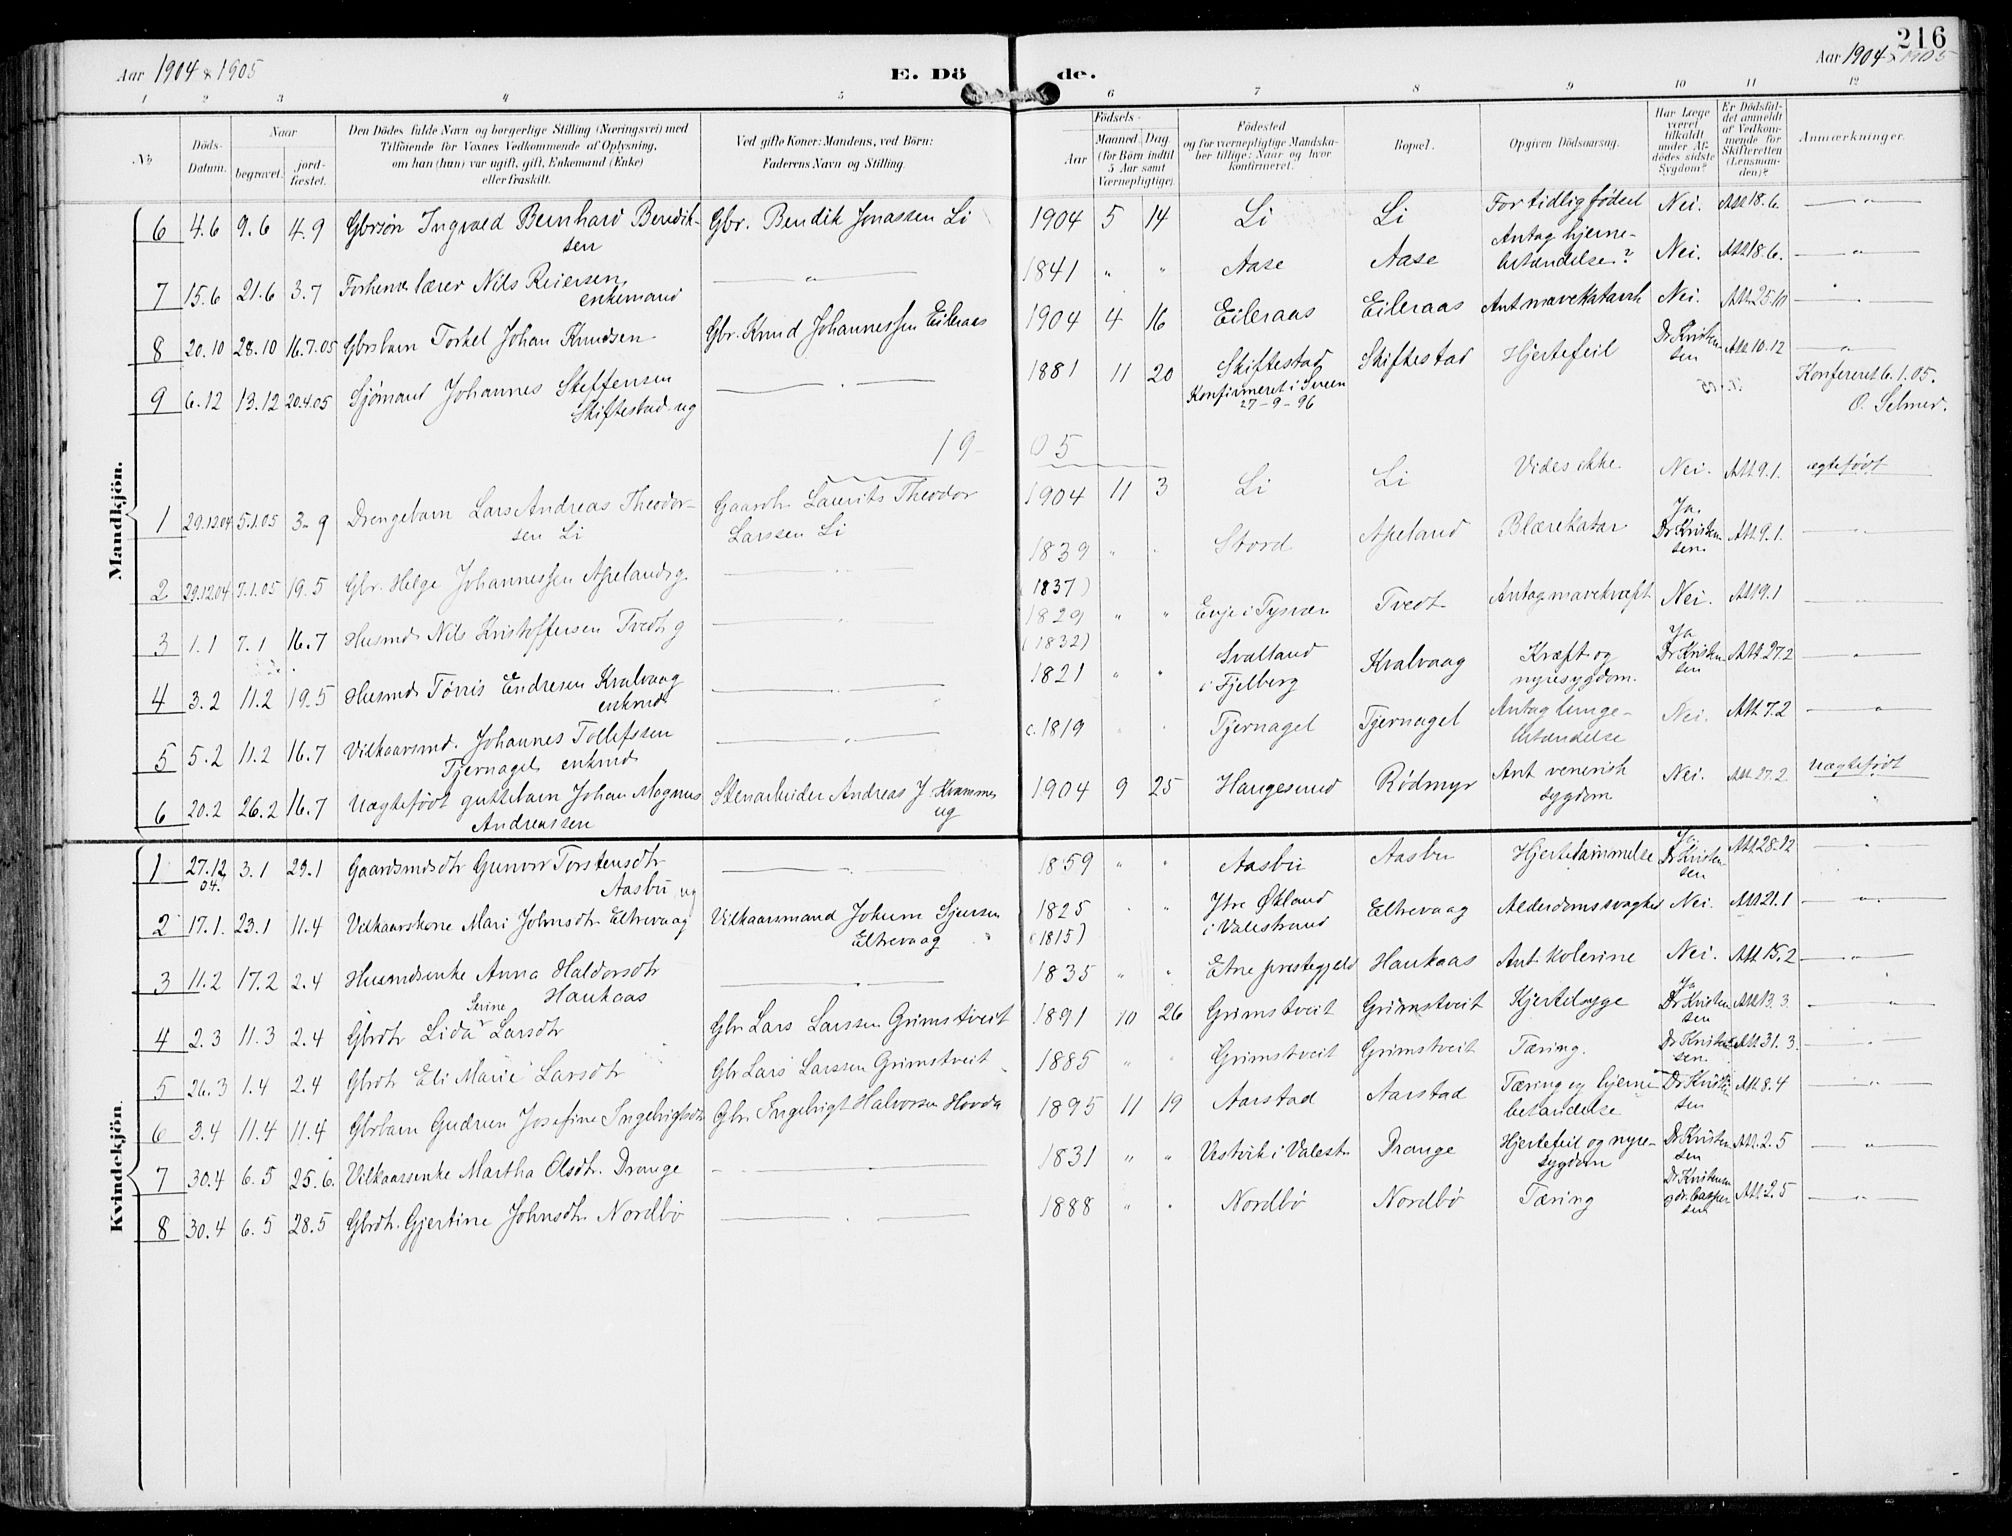 216
Aar 1904 & 1905 E. Dö de. Aar 1904 & 1905
1 2 3 4 5 6 7 8 9 10 11 12
No
Döds-Datum.
Naar
begravet.
jord-fæstet.
Den Dödes fulde Navn og borgerlige Stilling (Næringsvei) med
Tilföiende for Voxnes Vedkommende af Oplysning,
om han (hun) var ugift, gift, Enkemand (Enke)
eller fraskilt.
Ved gifte Koner: Mandens, ved Börn:
Faderens Navn og Stilling.
Födsels-
Aar
Maaned. Dag
(for Börn indtil
5 Aar samt
Værnepligtige).
Födested
og for værnepligtige Mandska-
ber tillige: Naar og hvor
konfirmeret.
Bopæl.
Opgiven Dödsaarsag.
Har Læge
været
tilkaldt
under Af-
dödes sidste
Sygdom?
Er Dödsfal-
det anmeldt
af Vedkom-
mende for
Skifteretten
(Lensman-
den)?
Anmærkninger.
Mandkjön.
6 4.6 9.6 4.9 Gbrsøn Ingvald Bernhard Bendik-
sen Gbr. Bendik Jonassen Li 1904 5 14 Li Li For tidlig fødsel Nei. Att 18.6. — " —
7 15.6 21.6 3.7 Forhenv lærer Nils Reiersen
enkemand — " — 1841 " " Aase Aase Antag hjerne-
betændelse? Nei. Att 18.6. — " —
8 20.10 28.10 16.7.05 Gbrbarn Torkel Johan Knudsen Gbr. Knud Johannessen Eileraas 1904 4 16 Eileraas Eileraas Ant mavekatarrh Nei. Att 25.10 — " —
9 6.12 13.12 20.4.05 Sjømand Johannes Steffensen
Skiftestad ug — " — 1881 11 20 Skiftestad
Konfirmeret i Sveen
27-9-96 Skiftestad Hjertefeil Dr Kristen
sen Att 10.12 — " —
Konfereret 6.1.05.
O. Selmer.
1905
1 29.12.04 5.1.05 3-9 Drengebarn Lars Andreas Theodor-
sen Li Gaardbr. Laurits Theodor
Larssen Li 1904 11 3 Li Li Vides ikke. Nei. Att 9.1. ægtefødt
2 29.12.04 7.1.05 19.5 Gbr. Helge Johannessen Apeland g. — " — 1839 " " Stord Apeland Blærekatar Ja.
Dr Kristen
sen. Att 9.1. — " —
3 1.1 7.1 16.7 Husmd Nils Kristoffersen Tvedt g — " — (1837)
1829 " " Evje i Tysvær Tvedt Antag mavekræft Nei. Att 19.1 — " —
4 3.2 11.2 19.5 Husmd Tørris Endresen Kvalvaag
enkmd — " — (1832)
1821 " " Svalland
i Fjelberg Kvalvaag Kræft og
nyresygdom. Ja
Dr Kristen
sen Att 27.2 — " —
5 5.2 11.2 16.7 Vilkaarsmd. Johannes Tollefssen
Tjernagel enkmd — " — c. 1819 " " Tjernagel Tjernagel Antag lunge-
betændelse Nei. Att 7.2 — " —
6 20.2 26.2 16.7 Uægtefødt guttebarn Johan Magnus
Andreassen Stenarbeider Andreas J. Kvamme
ug 1904 9 25 Haugesund Rødmyr Ant venerisk
sygdom Nei. Att 27.2 Uægtefødt
"
Kvindekjön.
1 27.12
04. 3.1 29.1 Gaardsmdsdtr Gunvor Torstensdtr
Aasbu ug — " — 1859 " " Aasbu Aasbu Hjertelammelse Ja
Dr Kristen
sen Att 28.12 — " —
2 17.1. 23.1 11.4 Vilkaarskone Mari Johnsdtr Eltrevaag Vilkaarsmand Johum Sjursen
Eltrevaag 1825
(1815) " " Ytre Økland
i Valestrand Eltrevaag Alderdomssvaghed Nei. Att 21.1 — " —
3 11.2 17.2 2.4 Husmdsenke Anna Haldorsdtr
Haukaas — " — 1835 " " Etne prestegjeld Haukaas Ant. Kolerine Nei. Att 15.2 — " —
4 2.3 11.3 2.4 Gbrdtr Lida Serine Larsdtr Gbr Lars Larssen Grimstveit 1891 10 26 Grimstveit Grimstveit Kjertelsyge Ja
Dr Kristen
sen Att 13.3. — " —
5 26.3 1.4 2.4 Gbrdtr Eli Marie Larsdtr Gbr Lars Larssen Grimstveit 1885 " " Grimstveit Grimstveit Tæring. Dr Kristen
sen. Att 31.3. — " —
6 3.4 11.4 11.4 Gbrbarn Gudrun Josefine Ingebrigtsdtr Gbr. Ingebrigt Halvorsen Hovda 1895 11 19 Aarstad Aarstad Tæring og hjerne
betændelse Dr Kristen
sen Att 8.4 — " —
7 30.4 6.5 25.6. Vilkaarsenke Martha Olsdtr. Drange — " — 1831 " " Vestvik i Valestr. Drange Hjertefeil og nyre-
sygdom Dr Kristen
sen Att. 2.5 — " —
8 30.4 6.5 28.5 Gbrdtr. Gjertine Johnsdtr Nordbø — " — 1888 " " Nordbø Nordbø Tæring Dr Kristensen
og dr. Casper
sen Att 2.5 — " —